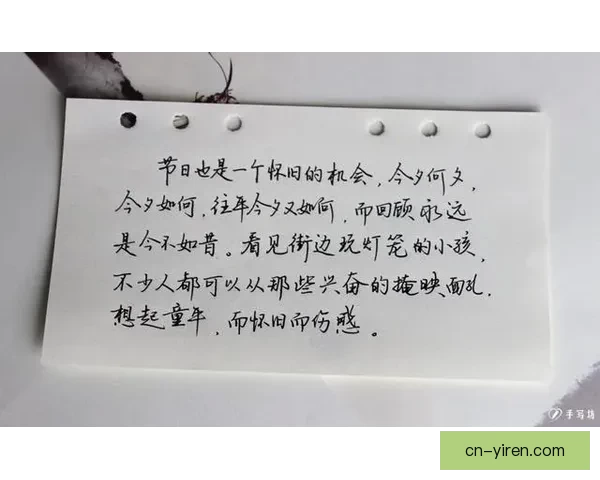 节日也是一个怀旧的机会，今夕何夕，
今夕如何，往年今夕又如何，而回顾永远
是今不如昔。看见街边玩灯笼的小孩，
不少人都可以从那些兴奋的掩映面孔.
想起童年，而怀旧而伤感。
手写稿
cn-yiren.com